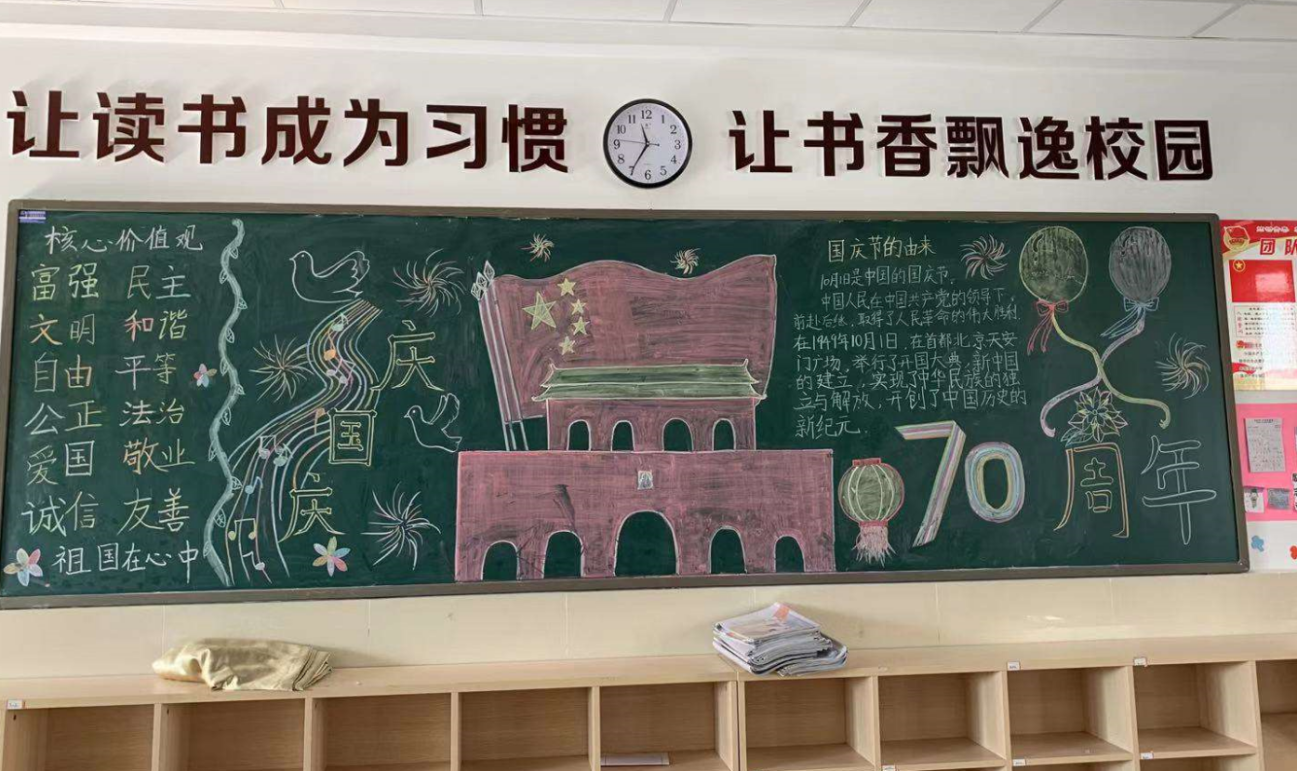 让读书成为习惯
让书香飘逸校园
12
1
2
3
4
5
6
7
8
9
10
11
核心价值观
富强 民主
文明 和谐
自由 平等
公正 法治
爱国 敬业
诚信 友善
祖国在心中
庆
国
庆
国庆节的由来
10月1日是中国的国庆节。
中国人民在中国共产党的领导下，
前赴后继，取得了人民革命的伟大胜利.
在1949年10月1日，在首都北京天安
门广场，举行了开国大典，新中国
的建立，实现了中华民族的独
立与解放，开创了中国历史的
新纪元.
70
周年
团队